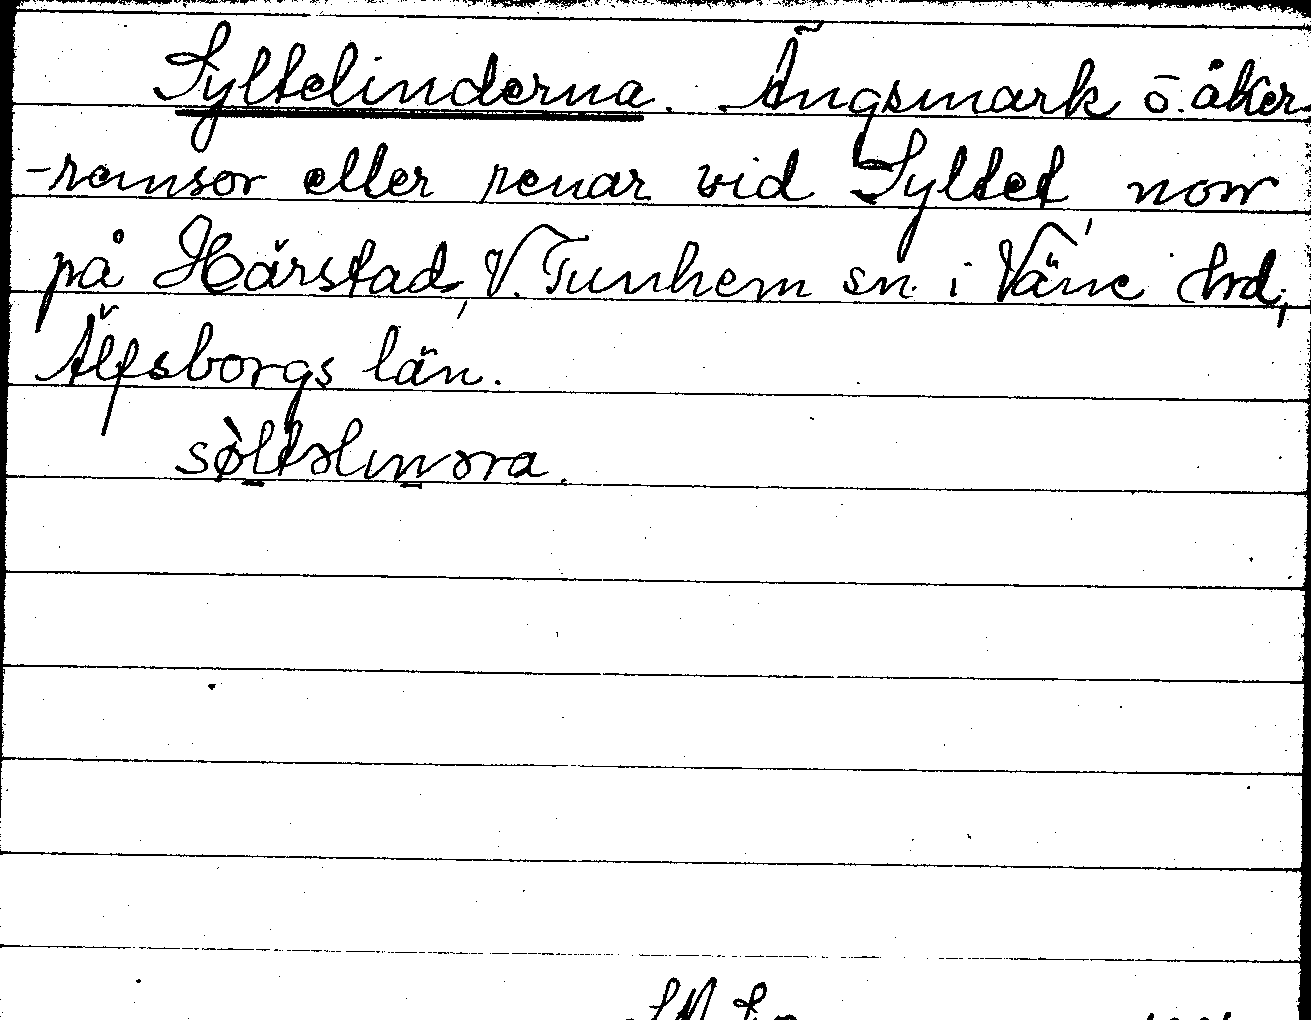 Syltelinderna. Ängsmark o. åker
-remsor eller renar vid Syltet, norr
på Härstad, V. Tunhem sn. i Väne hrd,
Älfsborgs län.
sø̀ltəlinəra.